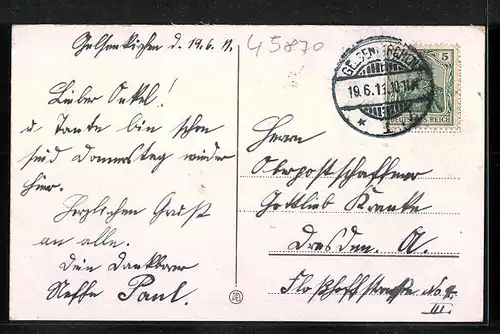 Gelsenkirchen d. 19.6.11.
45870
Lieber Onkel!
u Tante bin schon
seid Donnerstag wieder
hier.
Herzlichen Gruß
an alle.
Dein dankbarer
Neffe Paul.
GELSENKIRCHEN
19.6.11.
5
DEUTSCHES REICH
Herrn
Oberpostschaffner
Gottlieb
Dresden. A.
No
III.